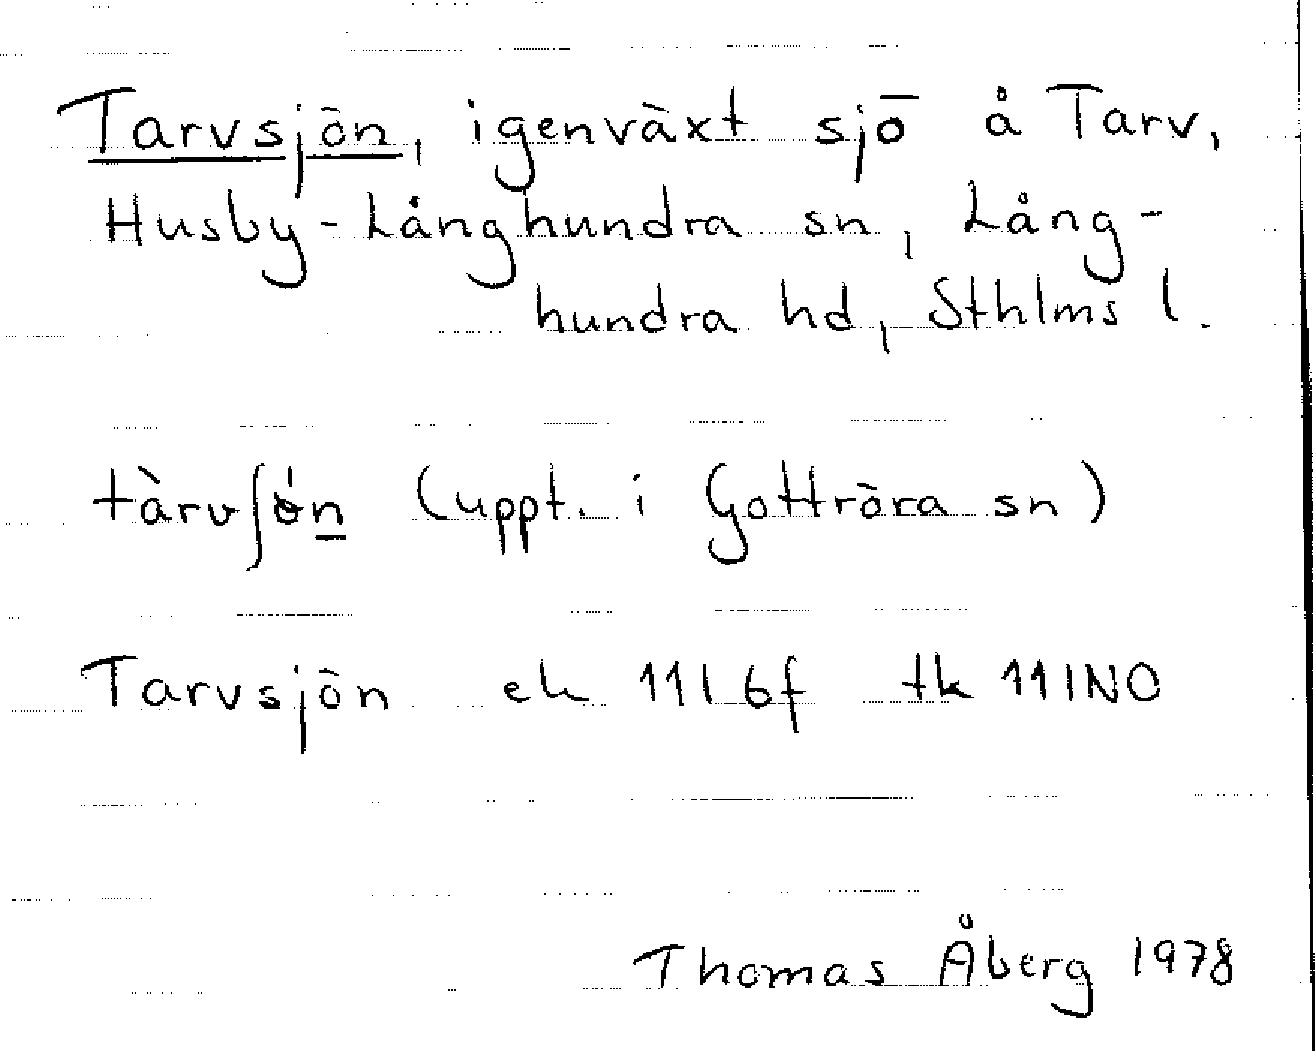 Tarvsjön, igenväxt sjö å Tarv,
Husby-Långhundra sn, Lång-
hundra hd, Sthlms l.
tàrvʃǿn (uppt. i Gottröra sn)
Tarvsjön ek 11I 6f tk 11INO
Thomas Åberg 1978